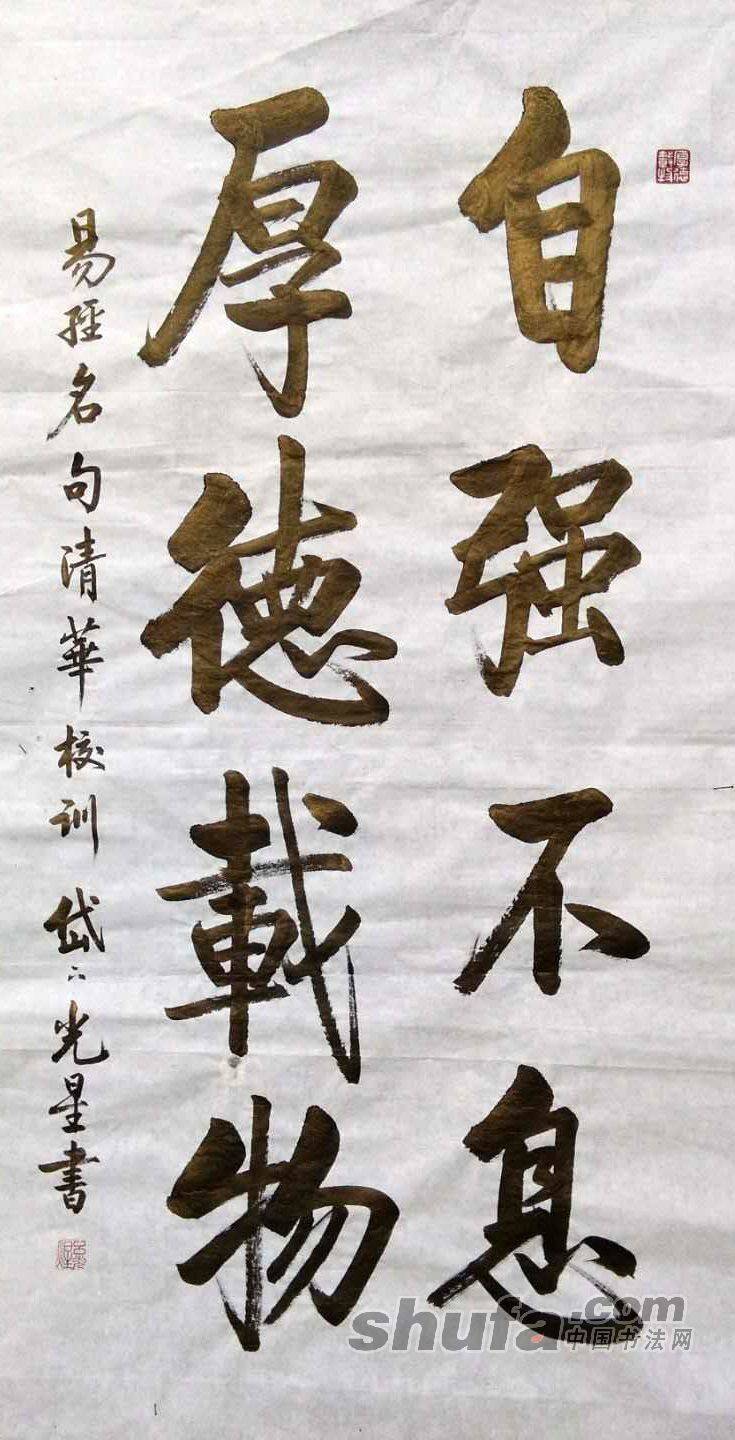 自强不息
厚德載物
易經名句清華校训 岱下光星書
shufa.com
中国书法网